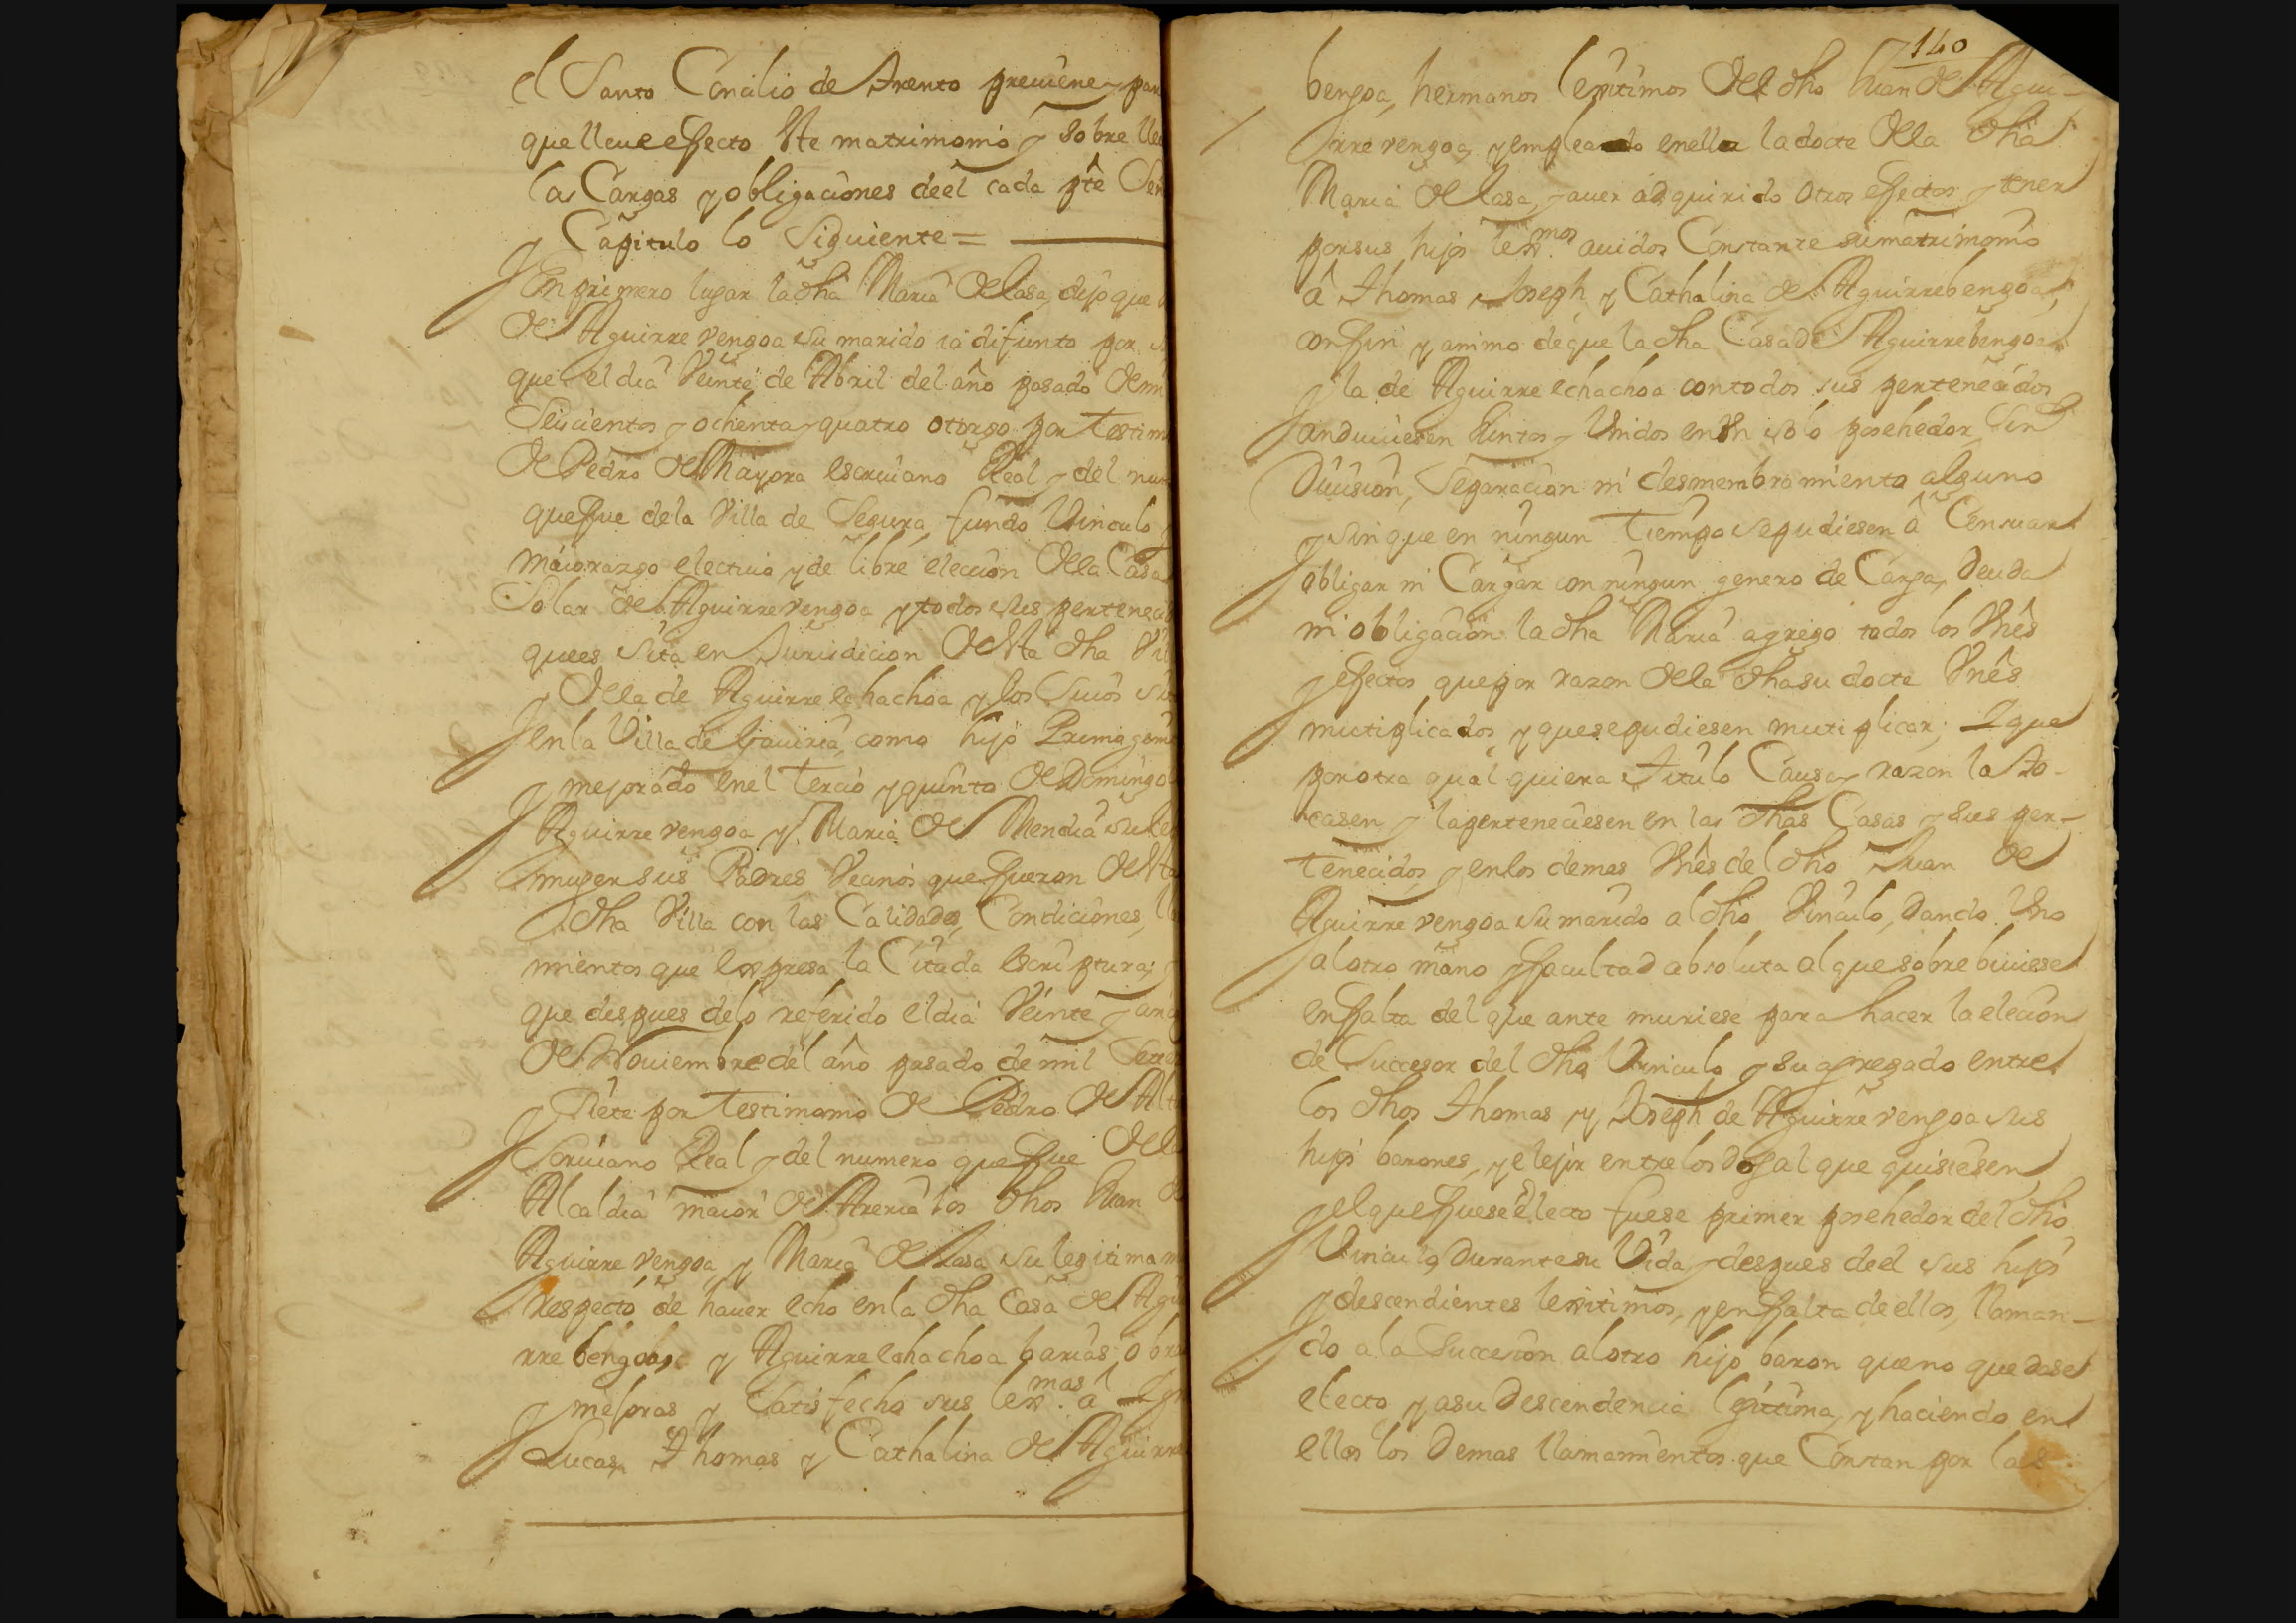 el Santo Concilio de Trento preuiene y par
que lleue effecto este matrimonio y sobre lle
las Cargas y obligaciones deel cada pte
y Capitulo lo Siguiente =
En primero lugar la dha Maria de lasa, dijo que
de Aguirre vengoa su marido ia difunto por
que el dia Veinte de Abril del año pasado de mi
Seiscientos y ochenta y quatro otorgo por Testim
de Pedro de Mayora escriuano Real y del num
que fue dela Villa de Segura, fundo Vinculo y
maiorazgo electiuo y de libre eleccion de la Casa
Solar de Aguirrevengoa y todos sus pertenecid
que es sita en Jurisdicion de esta dha Vi
y de la de Aguirre echachoa y los Suios
en la Villa de Gauiria, como hijo Primogeni
y mejorado en el Tercio y quinto de Domingo
Aguirre vengoa y Maria de Mendia su le
muger sus Padres Vecinos que fueron de esta
dha Villa con las Calidades, Condiciones, lla
mientos que expresa la Citada escriptura; y
que despues delo referido el dia Veinte y
de Nouiembre del año pasado de mil
y Siete por testimonio de Pedro de
Scriuano Real y del numero que fue de la
Alcaldia maior de Areria los dhos Juan de
Aguirre vengoa, y Maria de lasa su legitima m
respecto de hauer echo en la dha Casa de Agui
rre bengoa, y Aguirre echachoa barias obra
y mejoras y Satisfecho sus lexmas. a
Lucas, Thomas y Cathalina de Aguirre
140
bengoa, hermanos lexitimos del dho Juan de Agui-
rre vengoa, y empleado en ella la docte de la dha
Maria de lasa, y auer adquirido otros effectos y tener
por sus hijos lexmos. auidos Constante su matrimonio
â Thomas, Joseph, y Cathalina de Aguirrebengoa,
con fin y animo de que la dha Casa de Aguirrebengoa
y la de Aguirre echachoa con todos sus pertenecidos
anduuiesen Juntos y Unidos en Un solo posehedor Sin
Diuision, Separacion ni desmembramiento alguno
y sin que en ningun Tiempo se pudiesen â Censuar
obligar ni Cargar con ningun genero de Carga, Deuda
ni obligacion la dha Maria agrego todos los Vnês
y efectos que por razon de la dha su docte Vnês
mutiplicados y que se pudiesen mutiplicar; Y que
por otra qual quiera Titulo Causa y razon la to-
casen y la perteneciesen en las dhas Casas y sus per-
tenecidos y en los demas Vnês del dho Juan de
Aguirre vengoa su marido al dho Vinculo, Dando Uno
al otro mano y facultad absoluta al que sobrebiuiese
en falta del que ante muriese para hacer la elecion
de Succesor del dho Vinculo y su agregado entre
los dhos Thomas y Joseph de Aguirre vengoa sus
hijos barones, y elejir entre los dos al que quisiesen
y el que fuese electo fuese primer posehedor del dho
Vinculo, Durante su Vida y despues deel sus hijos
y descendientes lexitimos, y en falta de ellos, llaman-
do a la Succesion al otro hijo baron que no quedase
electo y asu Descendencia legitima, y haciendo en
ellos los Demas llamamientos que Constan por las